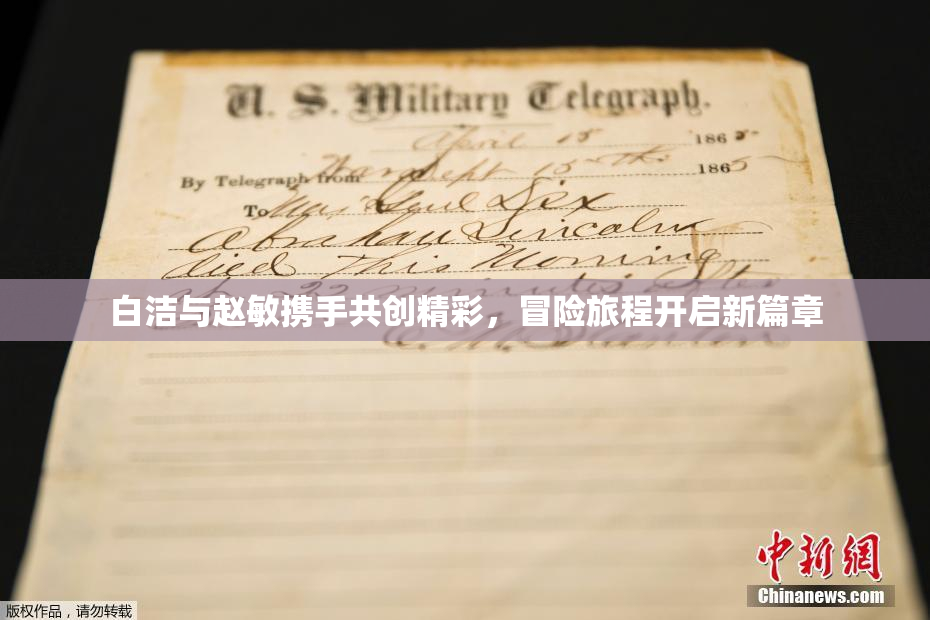 U. S. Military Telegraph.
April 15 1865.
By Telegraph from War Dept 15th 1865
To Maj Genl Dix
Abraham Lincoln
died This Morning
at 22 minutes after
白洁与赵敏携手共创精彩，冒险旅程开启新篇章
E. M. Stanton
中新网
Chinanews.com
版权作品，请勿转载